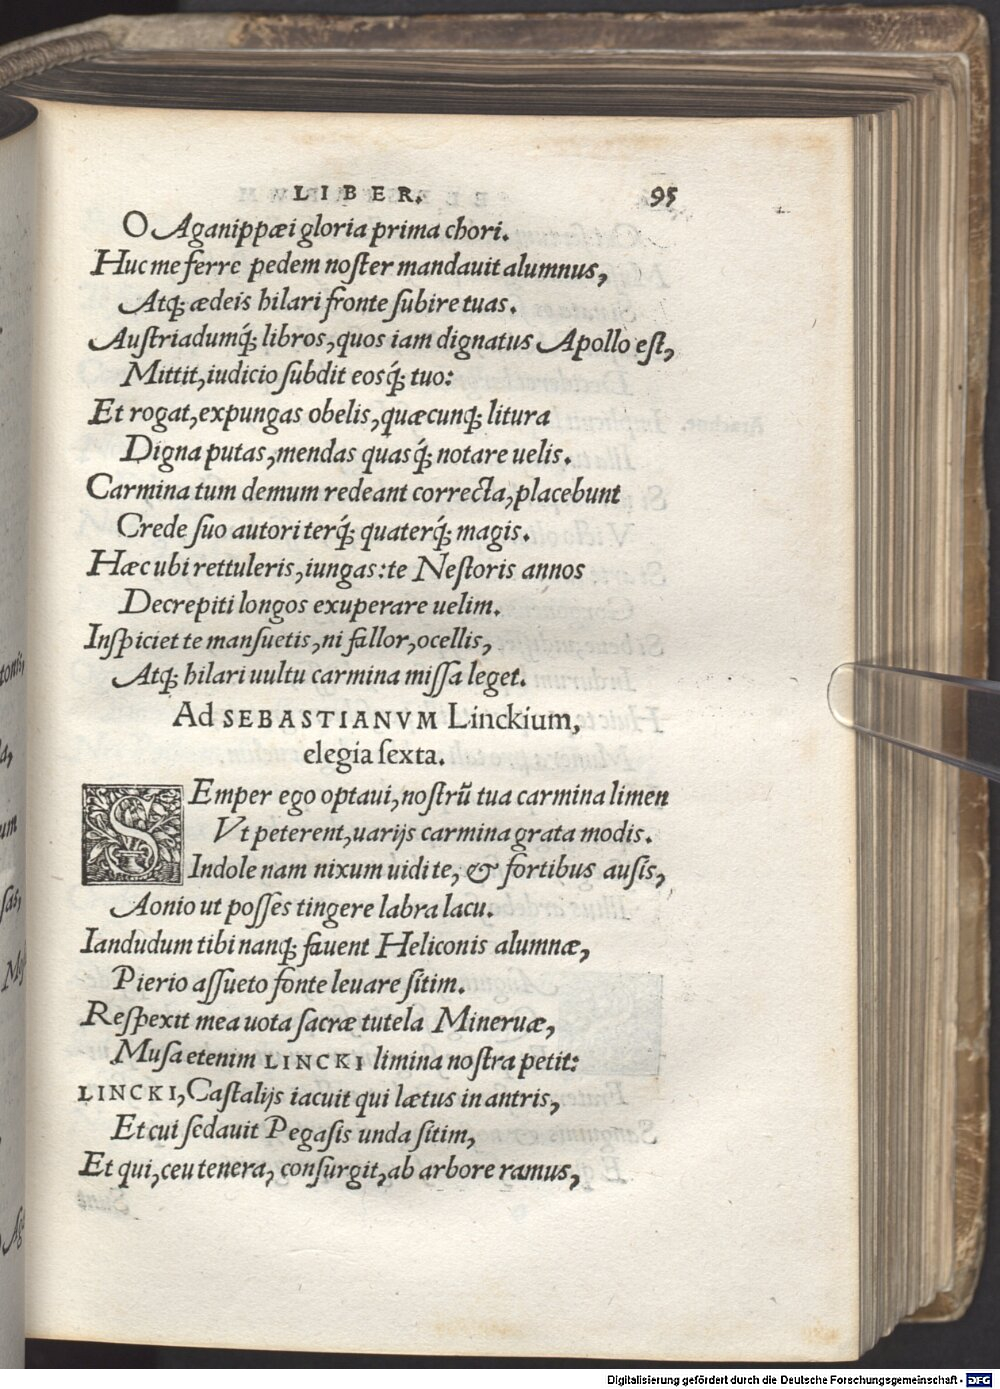 LIBER. 95
O Aganippæi gloria prima chori.
Huc me ferre pedem noster mandauit alumnus,
Atq; ædeis hilari fronte subire tuas.
Austriadumq́; libros, quos iam dignatus Apollo est,
Mittit, iudicio subdit eosq́; tuo:
Et rogat, expungas obelis, quæcunq; litura
Digna putas, mendas quasq́; notare uelis.
Carmina tum demum redeant correcta, placebunt
Crede suo autori terq́; quaterq́; magis.
Hæc ubi rettuleris, iungas: te Nestoris annos
Decrepiti longos exuperare uelim.
Inspiciet te mansuetis, ni fallor, ocellis,
Atq; hilari uultu carmina missa leget.
Ad SEBASTIANVM Linckium,
elegia sexta.
SEmper ego optaui, nostrũ tua carmina limen
Vt peterent, uarijs carmina grata modis.
Indole nam nixum uidi te, & fortibus ausis,
Aonio ut posses tingere labra lacu.
Iandudum tibi nanq; fauent Heliconis alumnæ,
Pierio assueto fonte leuare sitim.
Respexit mea uota sacræ tutela Mineruæ,
Musa etenim LINCKI limina nostra petit:
LINCKI, Castalijs iacuit qui lætus in antris,
Et cui sedauit Pegasis unda sitim,
Et qui, ceu tenera, consurgit, ab arbore ramus,
Digitalisierung gefördert durch die Deutsche Forschungsgemeinschaft - DFG